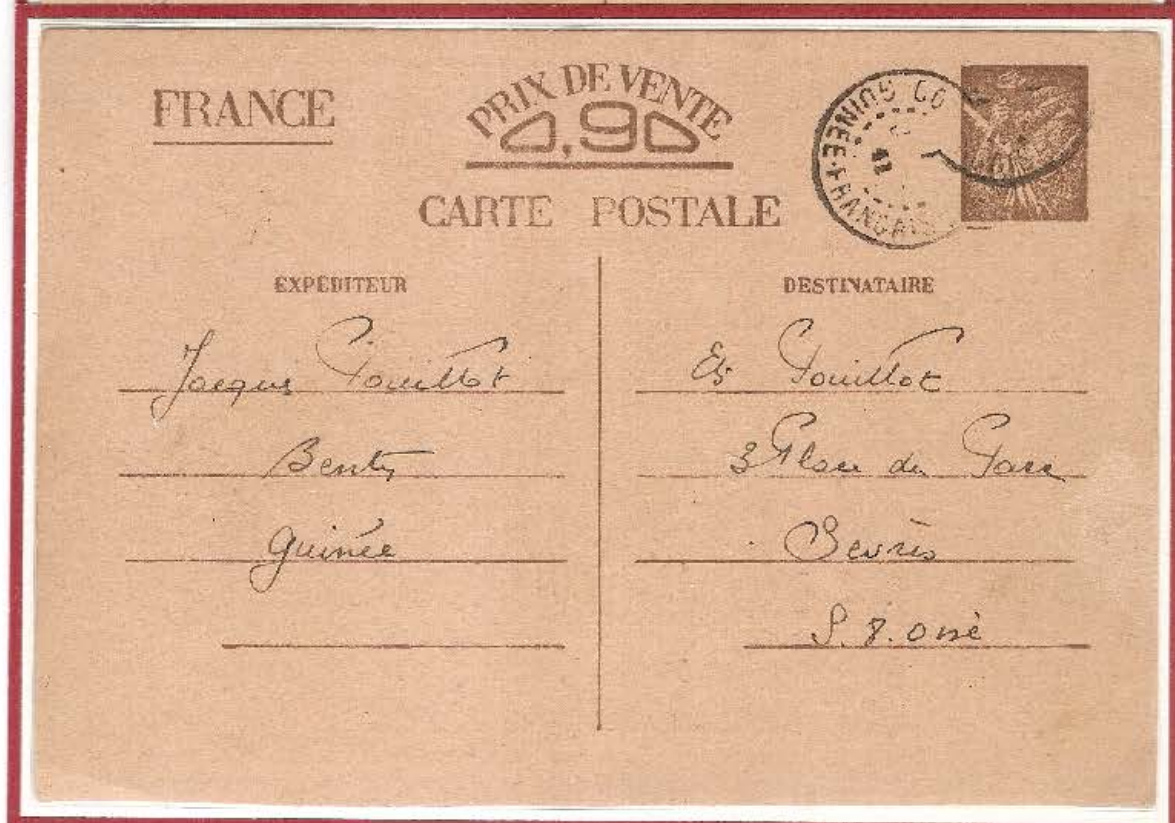 FRANCE
PRIX DE VENTE
0,90
CARTE POSTALE
GUINÉE FRANÇAISE
41
EXPÉDITEUR
Jacques Pouillot
Benty
Guinée
DESTINATAIRE
Ets Pouillot
3 Place du Parc
Sèvres
S. & Oise